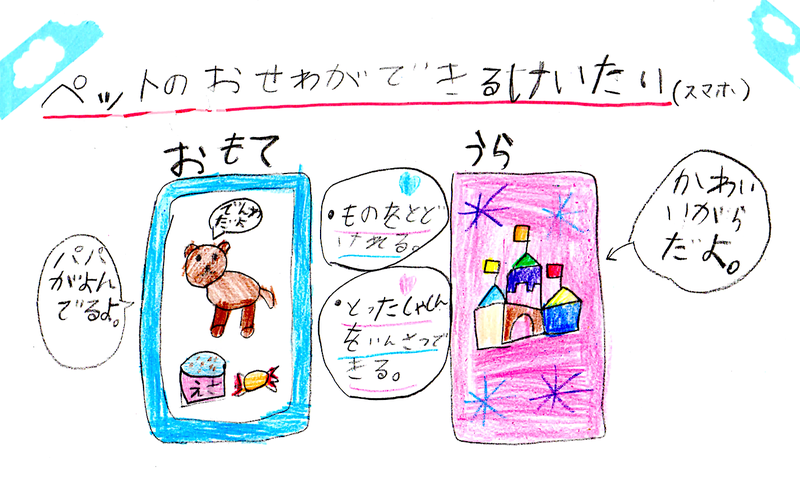 ペットのおせわができるけいたい(スマホ)
おもて
うら
でんわ
だよ
パパ
がよん
でるよ。
えさ
・ものをとど
けれる。
・とったしゃしん
をいんさつで
きる。
かわい
いがら
だよ。